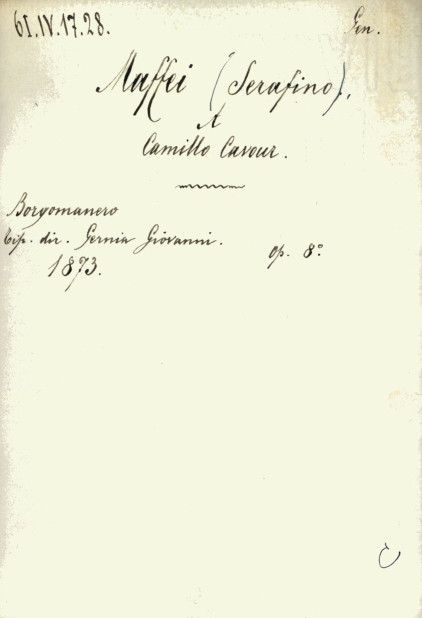 61.IV.17.28. Gen.
Maffei (Serafino),
A
Camillo Cavour.
Borgomanero
tip. dir. Gernia Giovanni.
1873. op. 8°
C